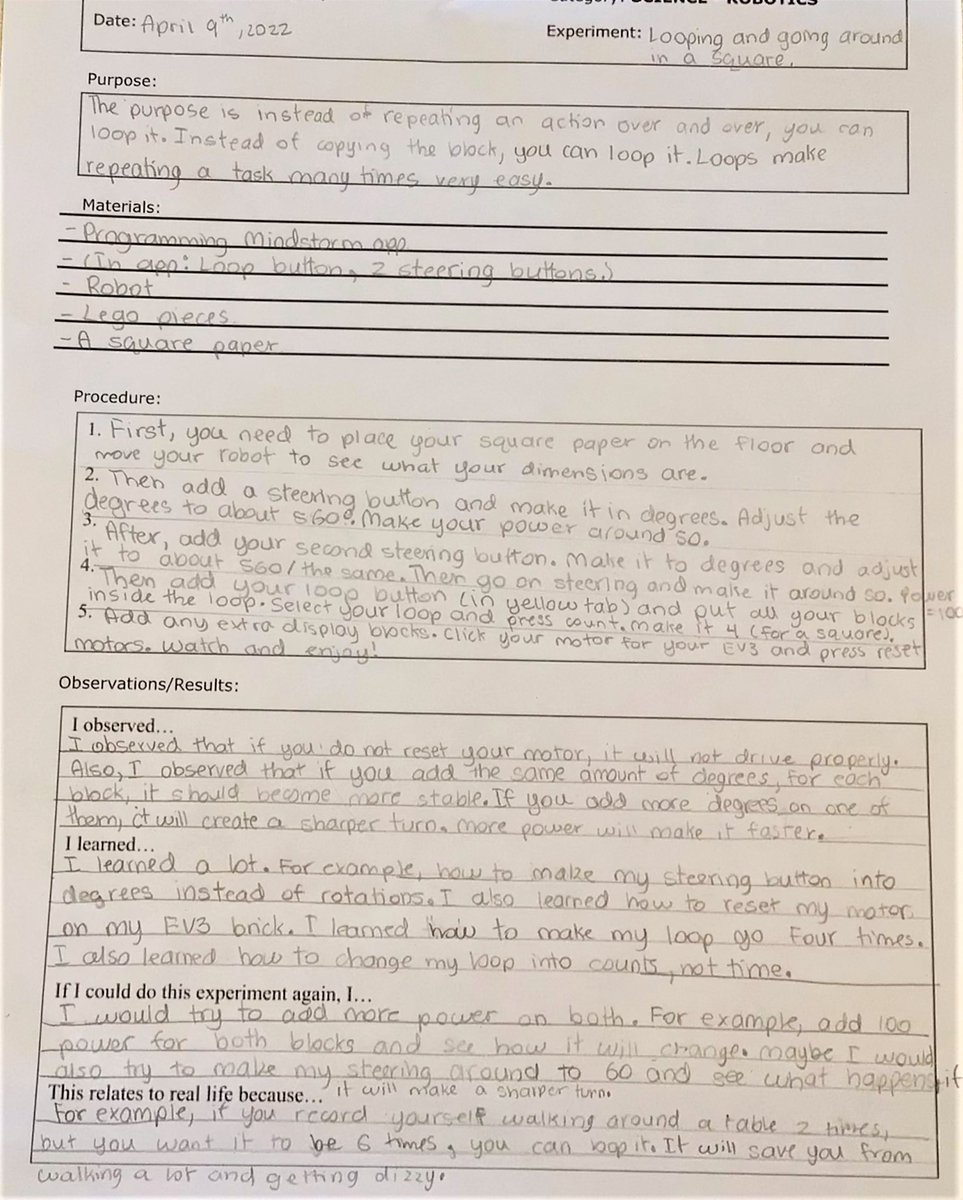 SCIENCE - ROBOTICS
Date: April 9th, 2022
Experiment: Looping and going around
in a square.
Purpose:
The purpose is instead of repeating an action over and over, you can
loop it. Instead of copying the block, you can loop it. Loops make
repeating a task many times very easy.
Materials:
- Programming Mindstorm app
- (In app: Loop button, 2 steering buttons.)
- Robot
- Lego pieces
- A square paper
Procedure:
1. First, you need to place your square paper on the floor and
move your robot to see what your dimensions are.
2. Then add a steering button and make it in degrees. Adjust the
degrees to about 560°. Make your power around 50.
3. After, add your second steering button. Make it to degrees and adjust
it to about 560/the same. Then go on steering and make it around 50. Power
=100
4. Then add your loop button (in yellow tab) and put all your blocks
inside the loop. Select your loop and press count. make it 4 (for a square).
5. Add any extra display blocks. Click your motor for your EV3 and press reset
motors. Watch and enjoy!
Observations/Results:
I observed...
I observed that if you do not reset your motor, it will not drive properly.
Also, I observed that if you add the same amount of degrees, for each
block, it should become more stable. If you add more degrees on one of
them, it will create a sharper turn. more power will make it faster.
I learned...
I learned a lot. For example, how to make my steering button into
degrees instead of rotations. I also learned how to reset my motor
on my EV3 brick. I learned how to make my loop go four times.
I also learned how to change my loop into counts, not time.
If I could do this experiment again, I...
I would try to add more power on both. For example, add 100
power for both blocks and see how it will change. maybe I would
also try to make my steering around to 60 and see what happens, if
it will make a sharper turn.
This relates to real life because...
For example, if you record yourself walking around a table 2 times,
but you want it to be 6 times, you can loop it. It will save you from
walking a lot and getting dizzy.